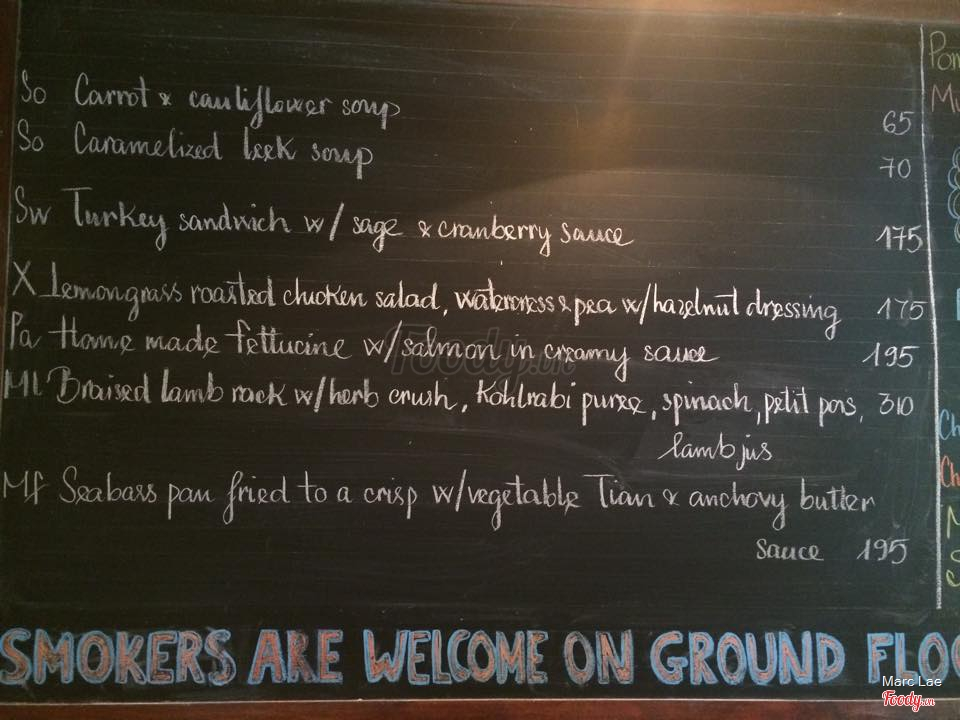 So Carrot & cauliflower soup 65
So Caramelized leek soup 70
Sw Turkey sandwich w/ sage & cranberry sauce 175
X Lemongrass roasted chicken salad, watercress & pea w/ hazelnut dressing 175
Pa Home made fettucine w/ salmon in creamy sauce 195
Ml Braised lamb rack w/ herb crush, Kohlrabi puree, spinach, petit pois, 310
lamb jus
Mf Seabass pan fried to a crisp w/ vegetable Tian & anchovy butter
sauce 195
SMOKERS ARE WELCOME ON GROUND FLOO
Pom
Mu
Ch
Ch
M
Foody.vn
Marc Lae
Foody.vn